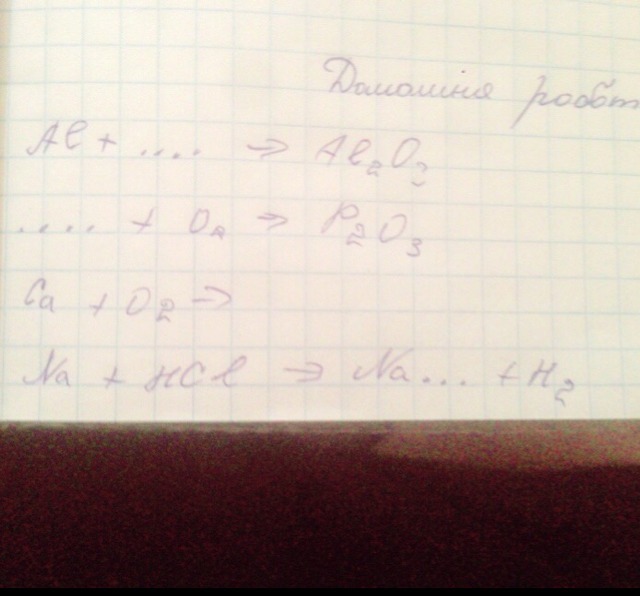 Домашня робот
Al + .... → Al₂O₃
.... + O₂ → P₂O₃
Ca + O₂ →
Na + HCl → Na... + H₂